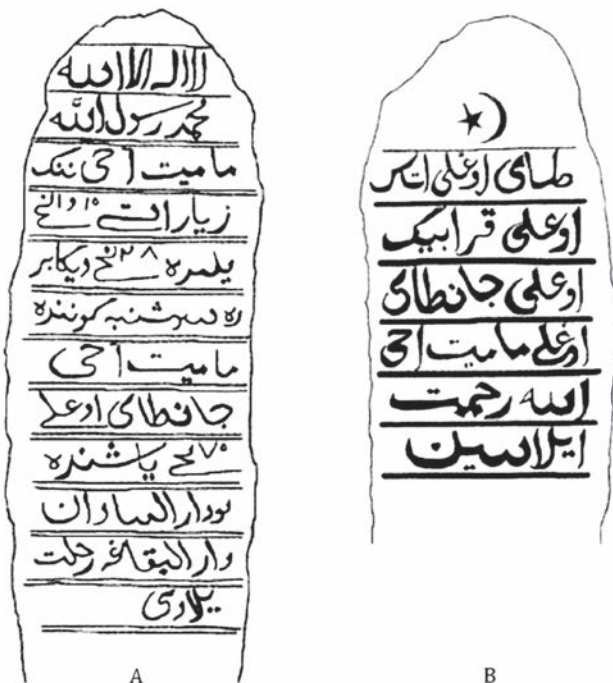 لا اله الا الله
محمد رسول الله
ماميت آحى ننك
زيارات
يلمره ٢٨ نحى ديكابر
ده سه شنبه كوننده
ماميت آحى
جانطاى اوغلى
٧٠ نحى ياشنده
بودار
دار البقاغه رحلت
يلادى
A
اوغلى
اوغلى قرابيك
اوغلى جانطاى
اوغلى ماميت احى
الله رحمت
ايلاسين
B